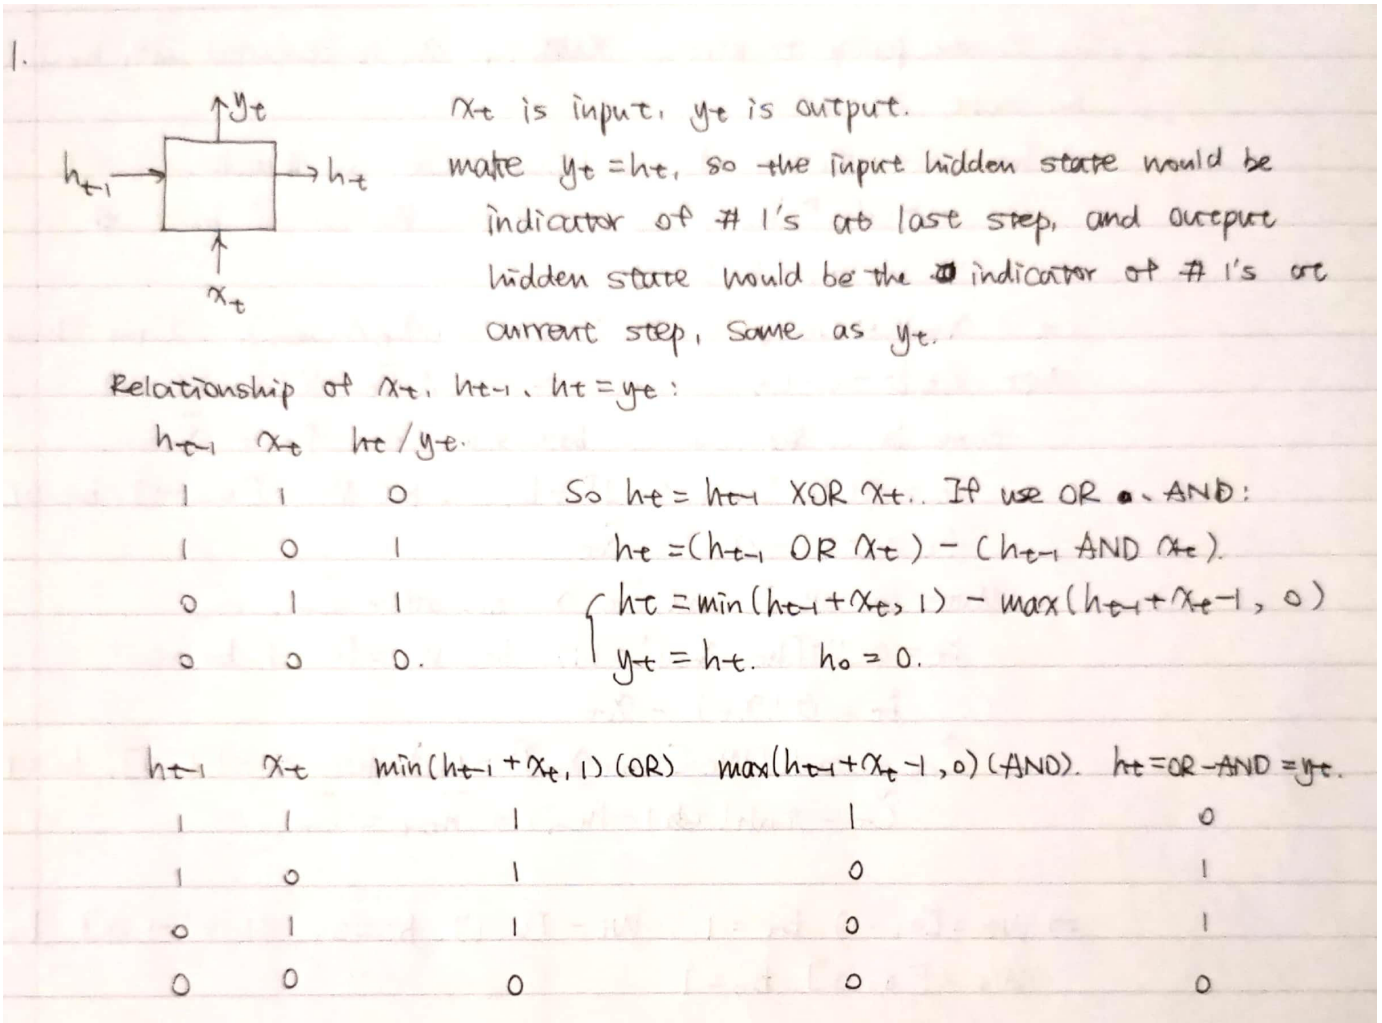 1.
yt
ht-1
ht
xt
xt is input, yt is output.
make yt = ht, so the input hidden state would be
indicator of # 1's at last step, and output
hidden state would be the indicator of # 1's at
current step, same as yt.
Relationship of xt, ht-1, ht = yt :
ht-1 xt ht/yt.
1 1 0 So ht = ht-1 XOR xt.. If use OR, AND:
1 0 1 ht = (ht-1 OR xt) - (ht-1 AND xt).
0 1 1 ht = min(ht-1+xt, 1) - max(ht-1+xt-1, 0)
0 0 0. yt = ht. h0 = 0.
ht-1 xt min(ht-1+xt, 1) (OR) max(ht-1+xt-1, 0) (AND). ht = OR-AND = yt.
1 1 1 1 0
1 0 1 0 1
0 1 1 0 1
0 0 0 0 0